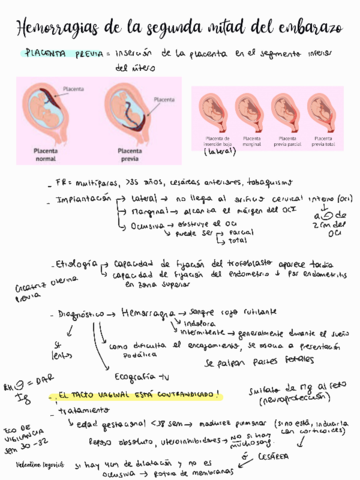 Hemorragias de la segunda mitad del embarazo
PLACENTA PREVIA = inserción de la placenta en el segmento inferior
del útero
Placenta
Placenta
Placenta normal
Placenta previa
Placenta de inserción baja
Placenta marginal
Placenta previa parcial
Placenta previa total
(lateral)
- FR = multíparas, >35 años, cesáreas anteriores, tabaquismo
- Implantación → Lateral → no llega al orificio cervical interno (OCI)
→ Marginal → alcanza el márgen del OCI
a 2cm del OCI
→ Oclusiva → obstruye el OCI
puede ser → parcial
→ total
- Etiología → capacidad de fijación del trofoblasto aparece tardía
→ capacidad de fijación del endometrio ↓ por endometritis
en zona superior
Cicatriz uterina previa
- Diagnóstico → Hemorragia → sangre roja rutilante
indolora
intermitente → generalmente durante el sueño
como dificulta el encajamiento, se asocia a presentación
podálica
Se palpan partes fetales
Ecografía TV
RH ⊖ = DAR
Ig
- ¡EL TACTO VAGINAL ESTÁ CONTRAINDICADO!
Sulfato de Mg al feto
(neuroprotección)
- tratamiento
→ edad gestacional <38 sem → madurez pulmonar (sino está, inducirla
con corticoides)
Reposo absoluto, uteroinhibidores → no si hay
mucho sang
CESÁREA
ECO DE
VIGILANCIA
SEM 30-32
si hay 4cm de dilatación y no es
oclusiva → rotura de membranas